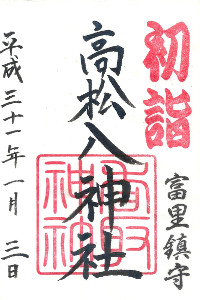 初詣
富里鎮守
高松入神社
平成三十一年一月三日